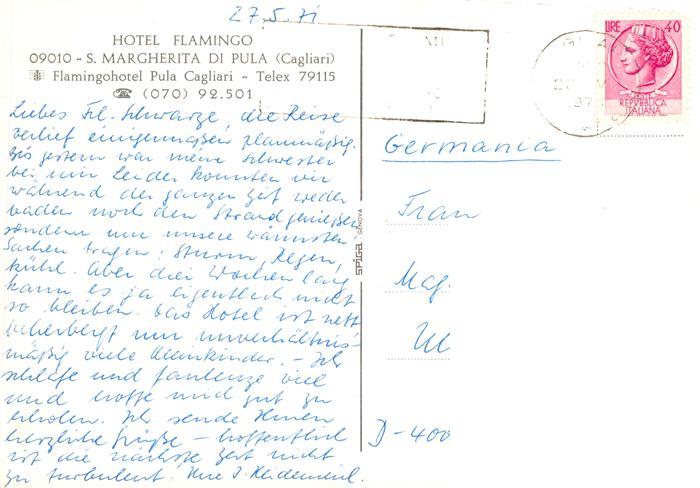 27.5.71
HOTEL FLAMINGO
09010 - S. MARGHERITA DI PULA (Cagliari)
Flamingohotel Pula Cagliari - Telex 79115
☎ (070) 92.501
Liebes Frl. Schwarze, die Reise
verlief einigermaßen planmäßig.
Bis gestern war meine Schwester
bei mir. Leider konnten wir
während der ganzen Zeit weder
baden noch den Strand genießen
sondern nur unsere wärmsten
Sachen tragen: Sturm, Regen,
kühl. Aber drei Wochen lang
kann es ja eigentlich nicht
so bleiben. Das Hotel ist nett
beherbergt nur unverhältnis-
mäßig viele Kleinkinder. – Ich
schlafe und faulenze viel
und hoffe mich gut zu
erholen. Ich sende Ihnen
herzliche Grüße – hoffentlich
ist die nächste Zeit nicht
zu turbulent. Ihre J.
LIRE 40
POSTE
REPVBBLICA
ITALIANA
Germania
Frau
Mag.
D-400
spiga GENOVA